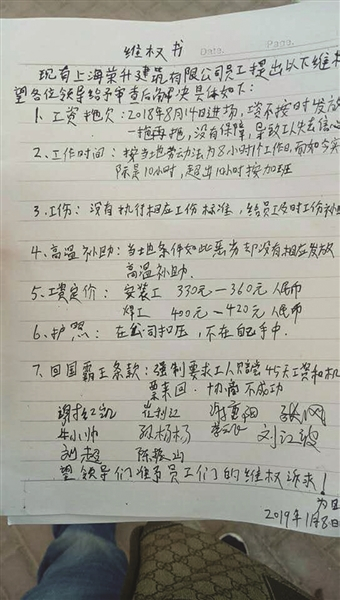 维权书
Date. Page.
现有上海荣升建筑有限公司员工提出以下维权
望各位领导给予审查后解决具体如下:
1. 工资拖欠:2018年8月14日进场,工资不按时发放
一拖再拖,没有保障,导致工人失去信心
2、工作时间:按当地劳动法为8小时1个工作日,而如今实
际是10小时,超出10小时按加班
3、工伤:没有执行相应工伤标准,给员工及时工伤补
4、高温补助:当地条件如此恶劣却没有相应发放
高温补助.
5、工资定价:安装工 330元—360元人民币
焊工 400元—420元人民币
6、护照:在公司扣压,不在自己手中.
7、回国霸王条款:强制要求工人赔偿45天工资和机
票来回.协商不成功
牛小帅 孙杨杨 刘江波
刘超 陈
望领导们准予员工们的维权诉求!
2019年1月8日